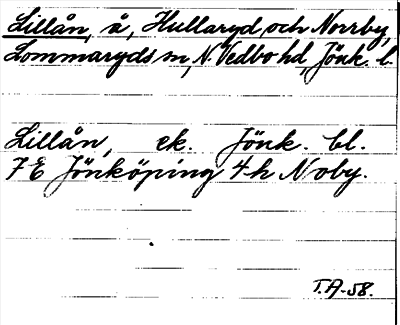 Lillån, å, Hullaryd och Norrby,
Lommaryds sn, N. Vedbo hd, Jönk. l.
Lillån, ek. Jönk. bl.
7 E Jönköping 4 h N oby.
T.A-58.